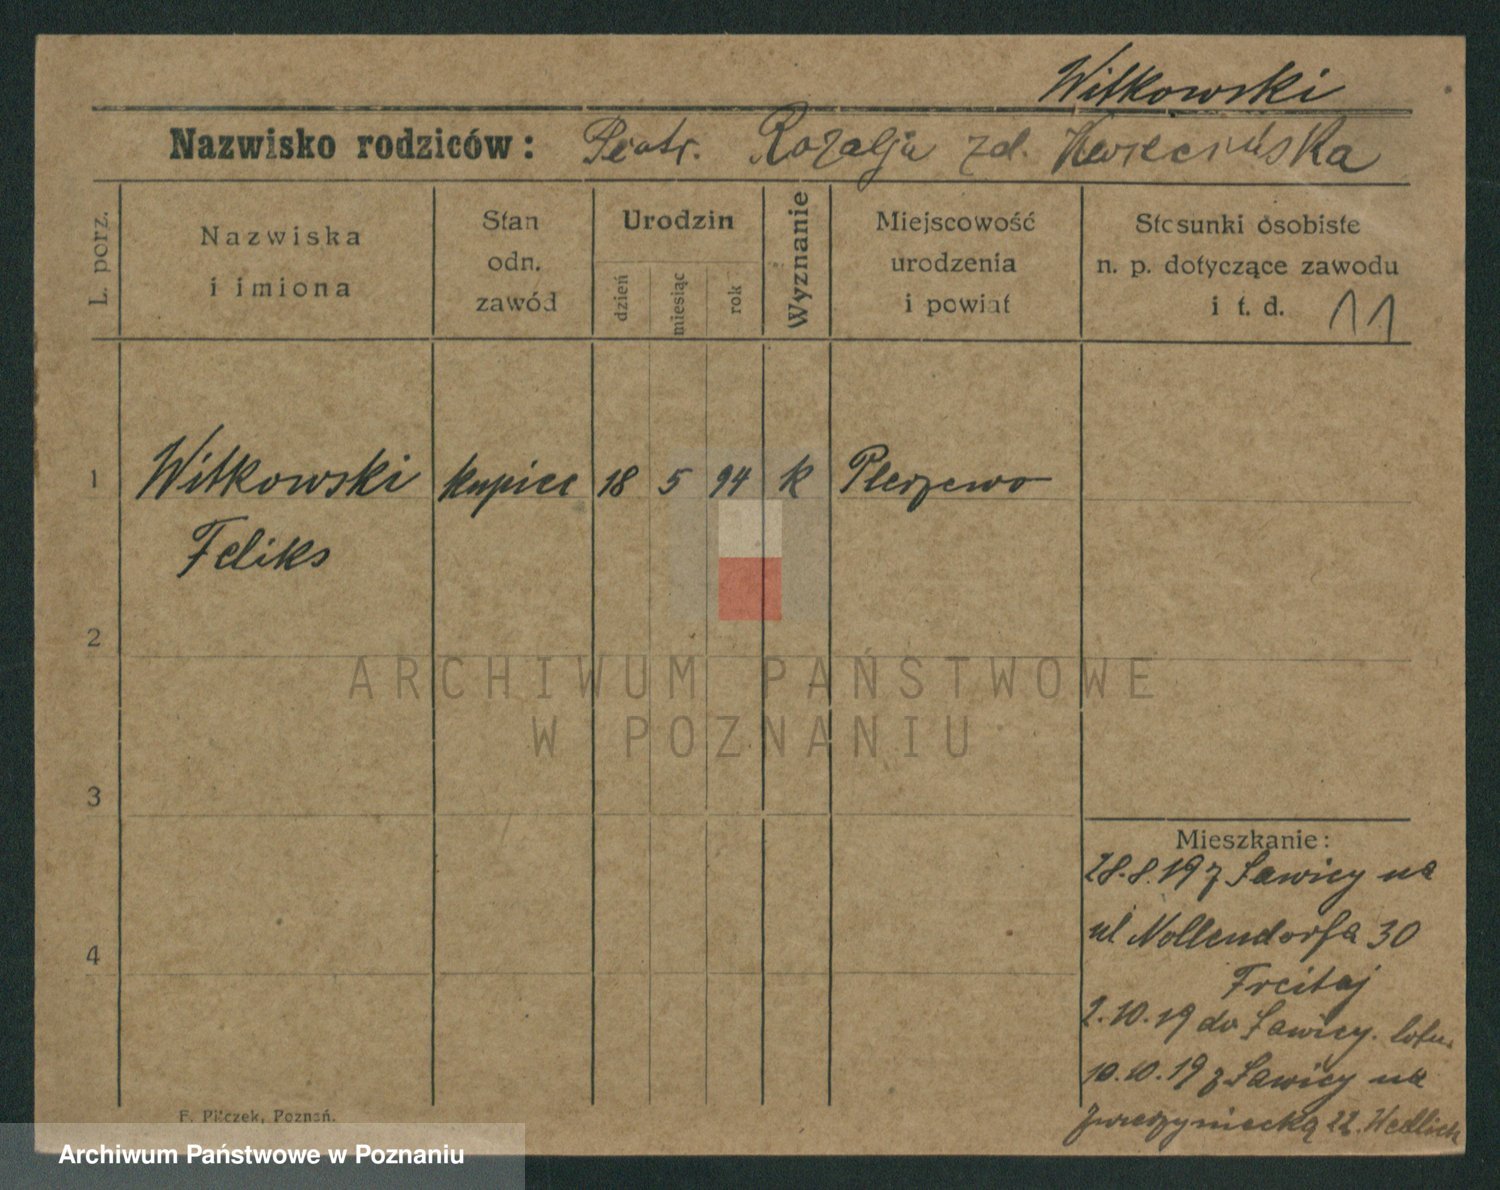 Witkowski
Nazwisko rodziców: Piotr. Rozalja zd. Kwiecińska
L. porz.
Nazwiska
i imiona
Stan
odn.
zawód
Urodzin
dzień
miesiąc
rok
Wyznanie
Miejscowość
urodzenia
i powiat
Stosunki osobiste
n. p. dotyczące zawodu
i t. d. 11
1 Witkowski kupiec 18 5 94 k
Feliks
2
ARCHIWUM PAŃSTWOWE
W POZNANIU
3
Mieszkanie:
28.8.19 z Ławicy na
ul Nollendorfa 30
4
Freitaj
2.10.19 do Ławicy.
10.10.19 z Ławicy na
Zwierzyniecką 22.
F. Pilczek, Poznań.
Archiwum Państwowe w Poznaniu